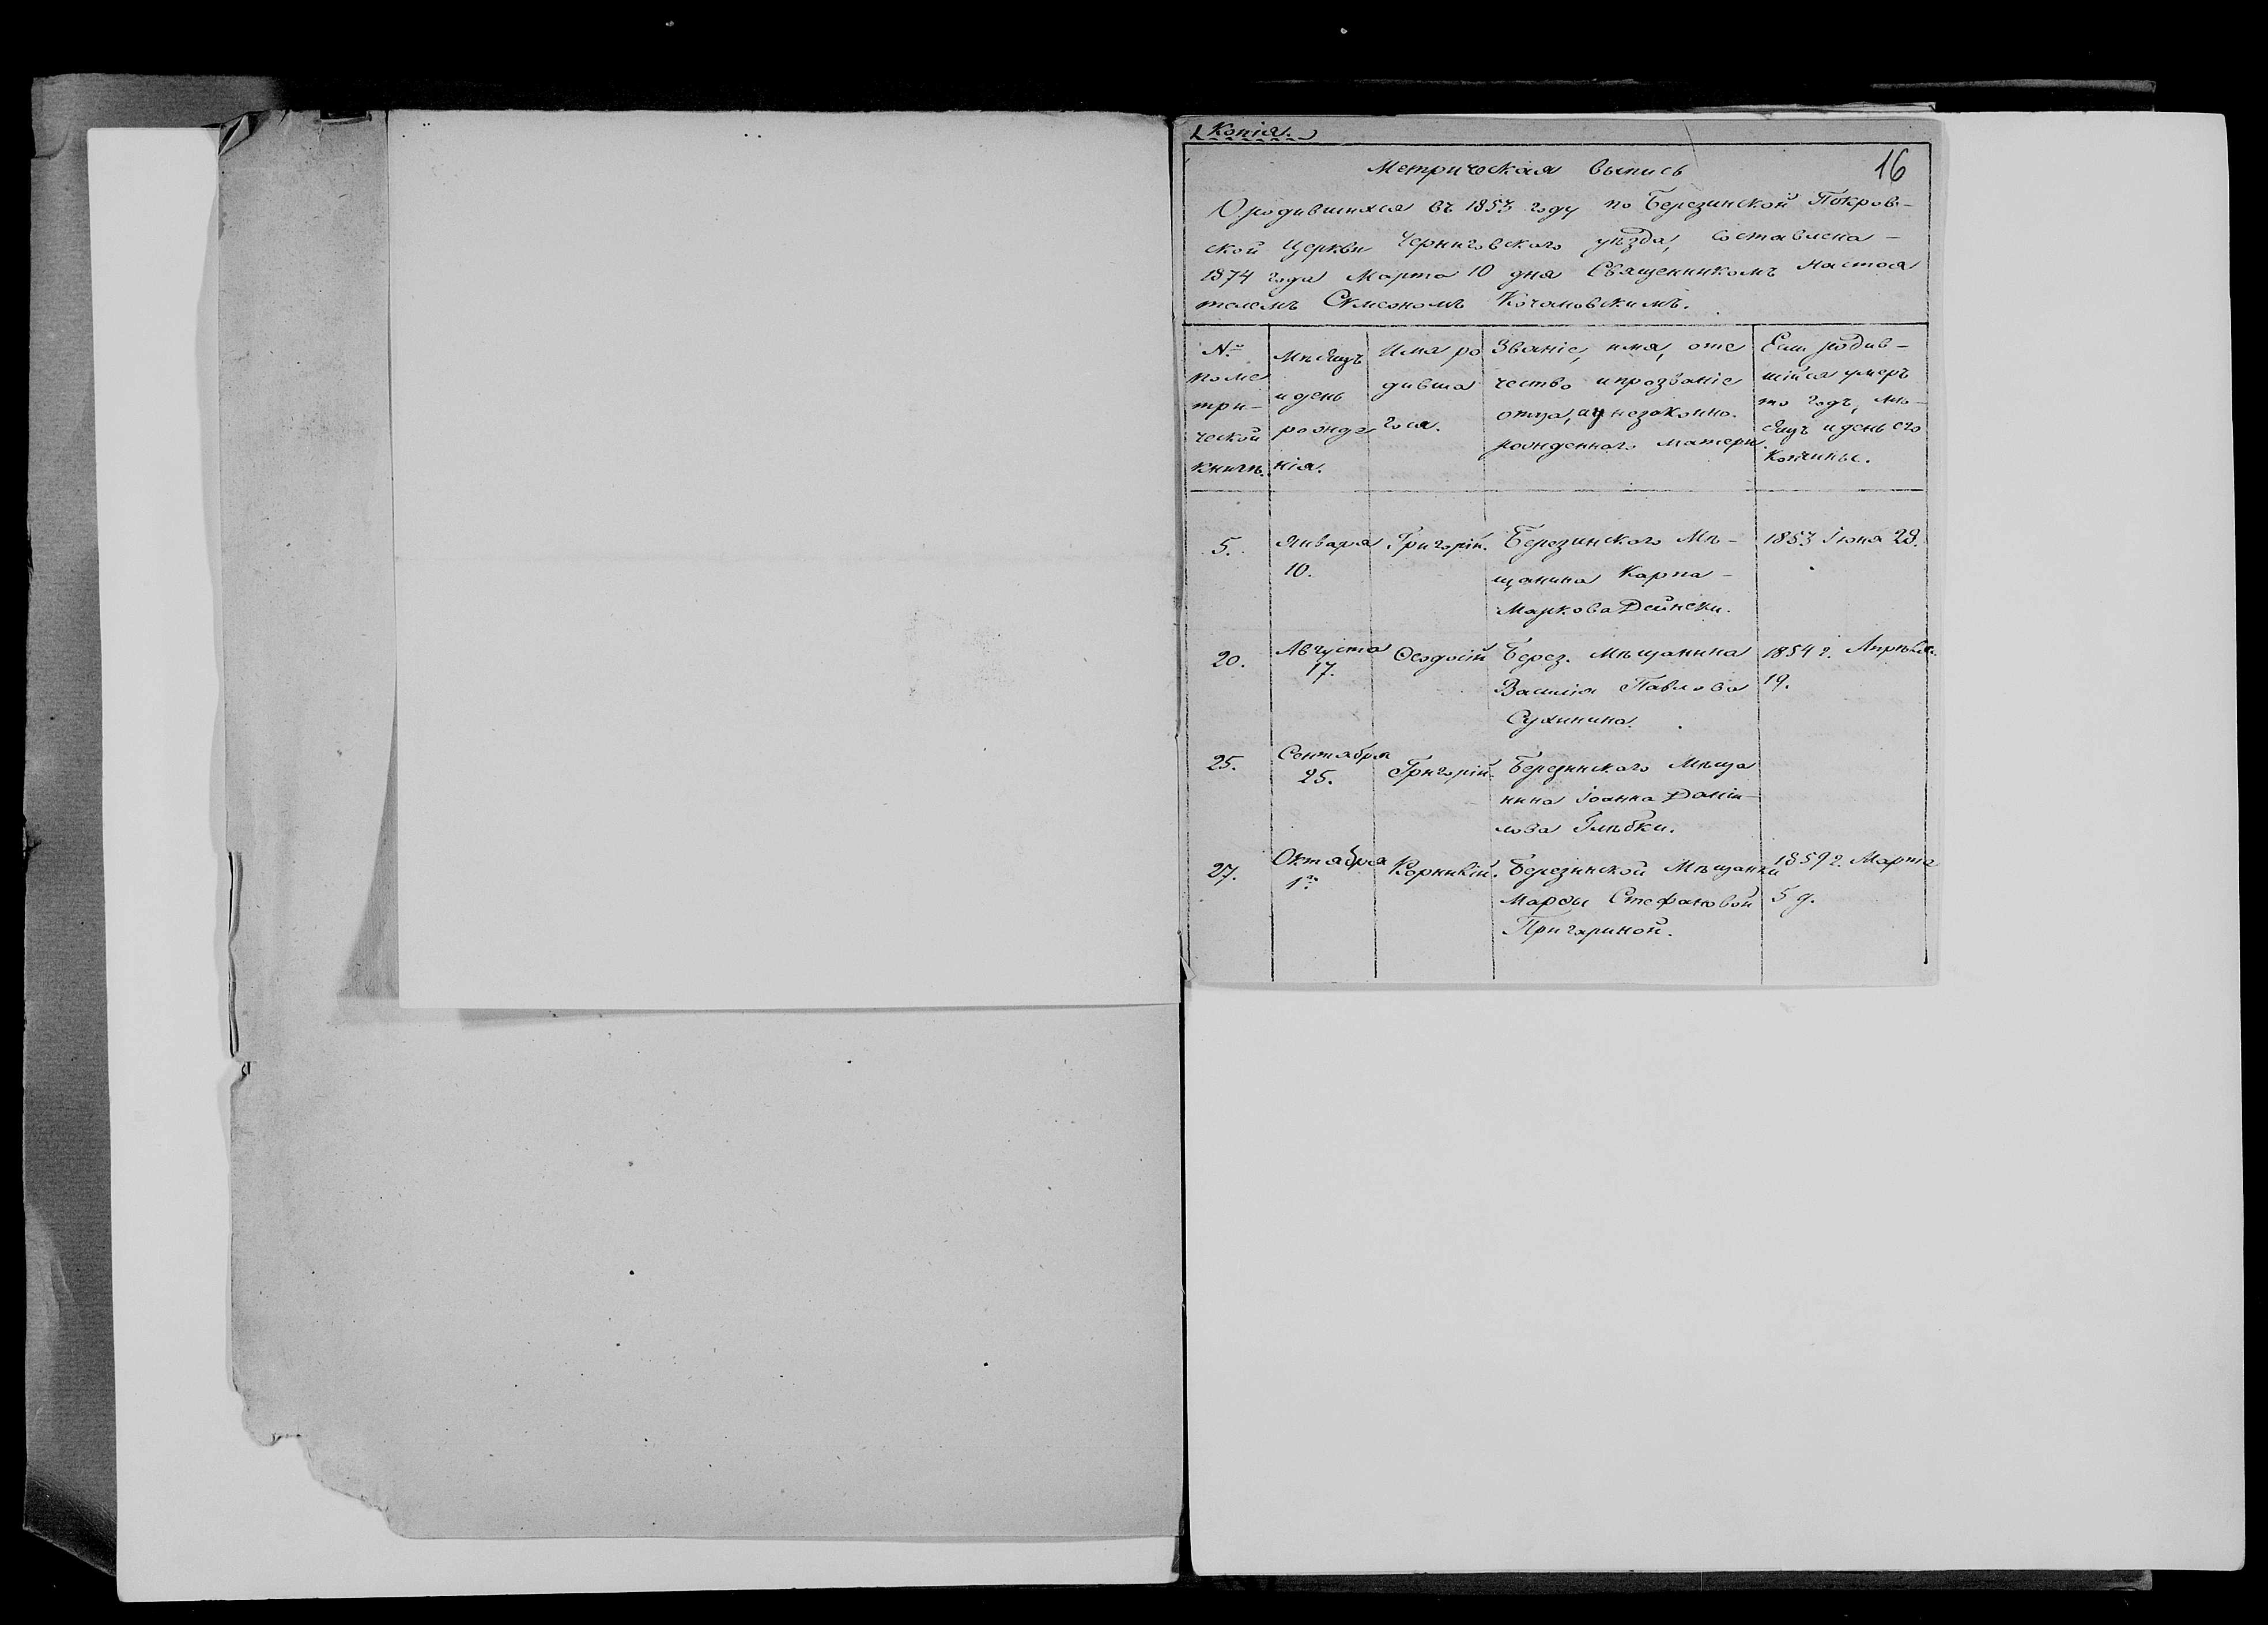 Копія.
16
Метрическая выпись
О родившихся въ 1853 году по Березинской Покров-
ской Церкви Черниговского уѣзда, составлена -
1874 года Марта 10 дня Священникомъ Настоя
телемъ Симеономъ Кочановскимъ.
№
по ме
три-
ческой
книгѣ.
Мѣсяцъ
и день
рожде
нія.
Имя ро
дивша
гося.
Званіе, имя, оте
чество и прозваніе
отца, а у незаконно.
рожденного матери.
Если родив-
шійся умеръ
то годъ, мѣ-
сяцъ и день его
кончины.
5.
Января
10.
Григорій.
Березинского Мѣ-
щанина Карпа -
Маркова Дейнеки.
1853 Іюня 28.
20.
Августа
17.
Ѳеодосій
Берез. Мѣщанина
Василія Павлова
Сухинина.
1854 г. Апрѣля.
19.
25.
Сентября
25.
Григорій.
Березинского Мѣща
нина Іоанна Даніи-
лова Глѣбки.
27.
Октября
1го
Корнилій.
Березинской Мѣщанки
Марѳы Стефановой
Пригариной.
1859 г. Марта
5 д.